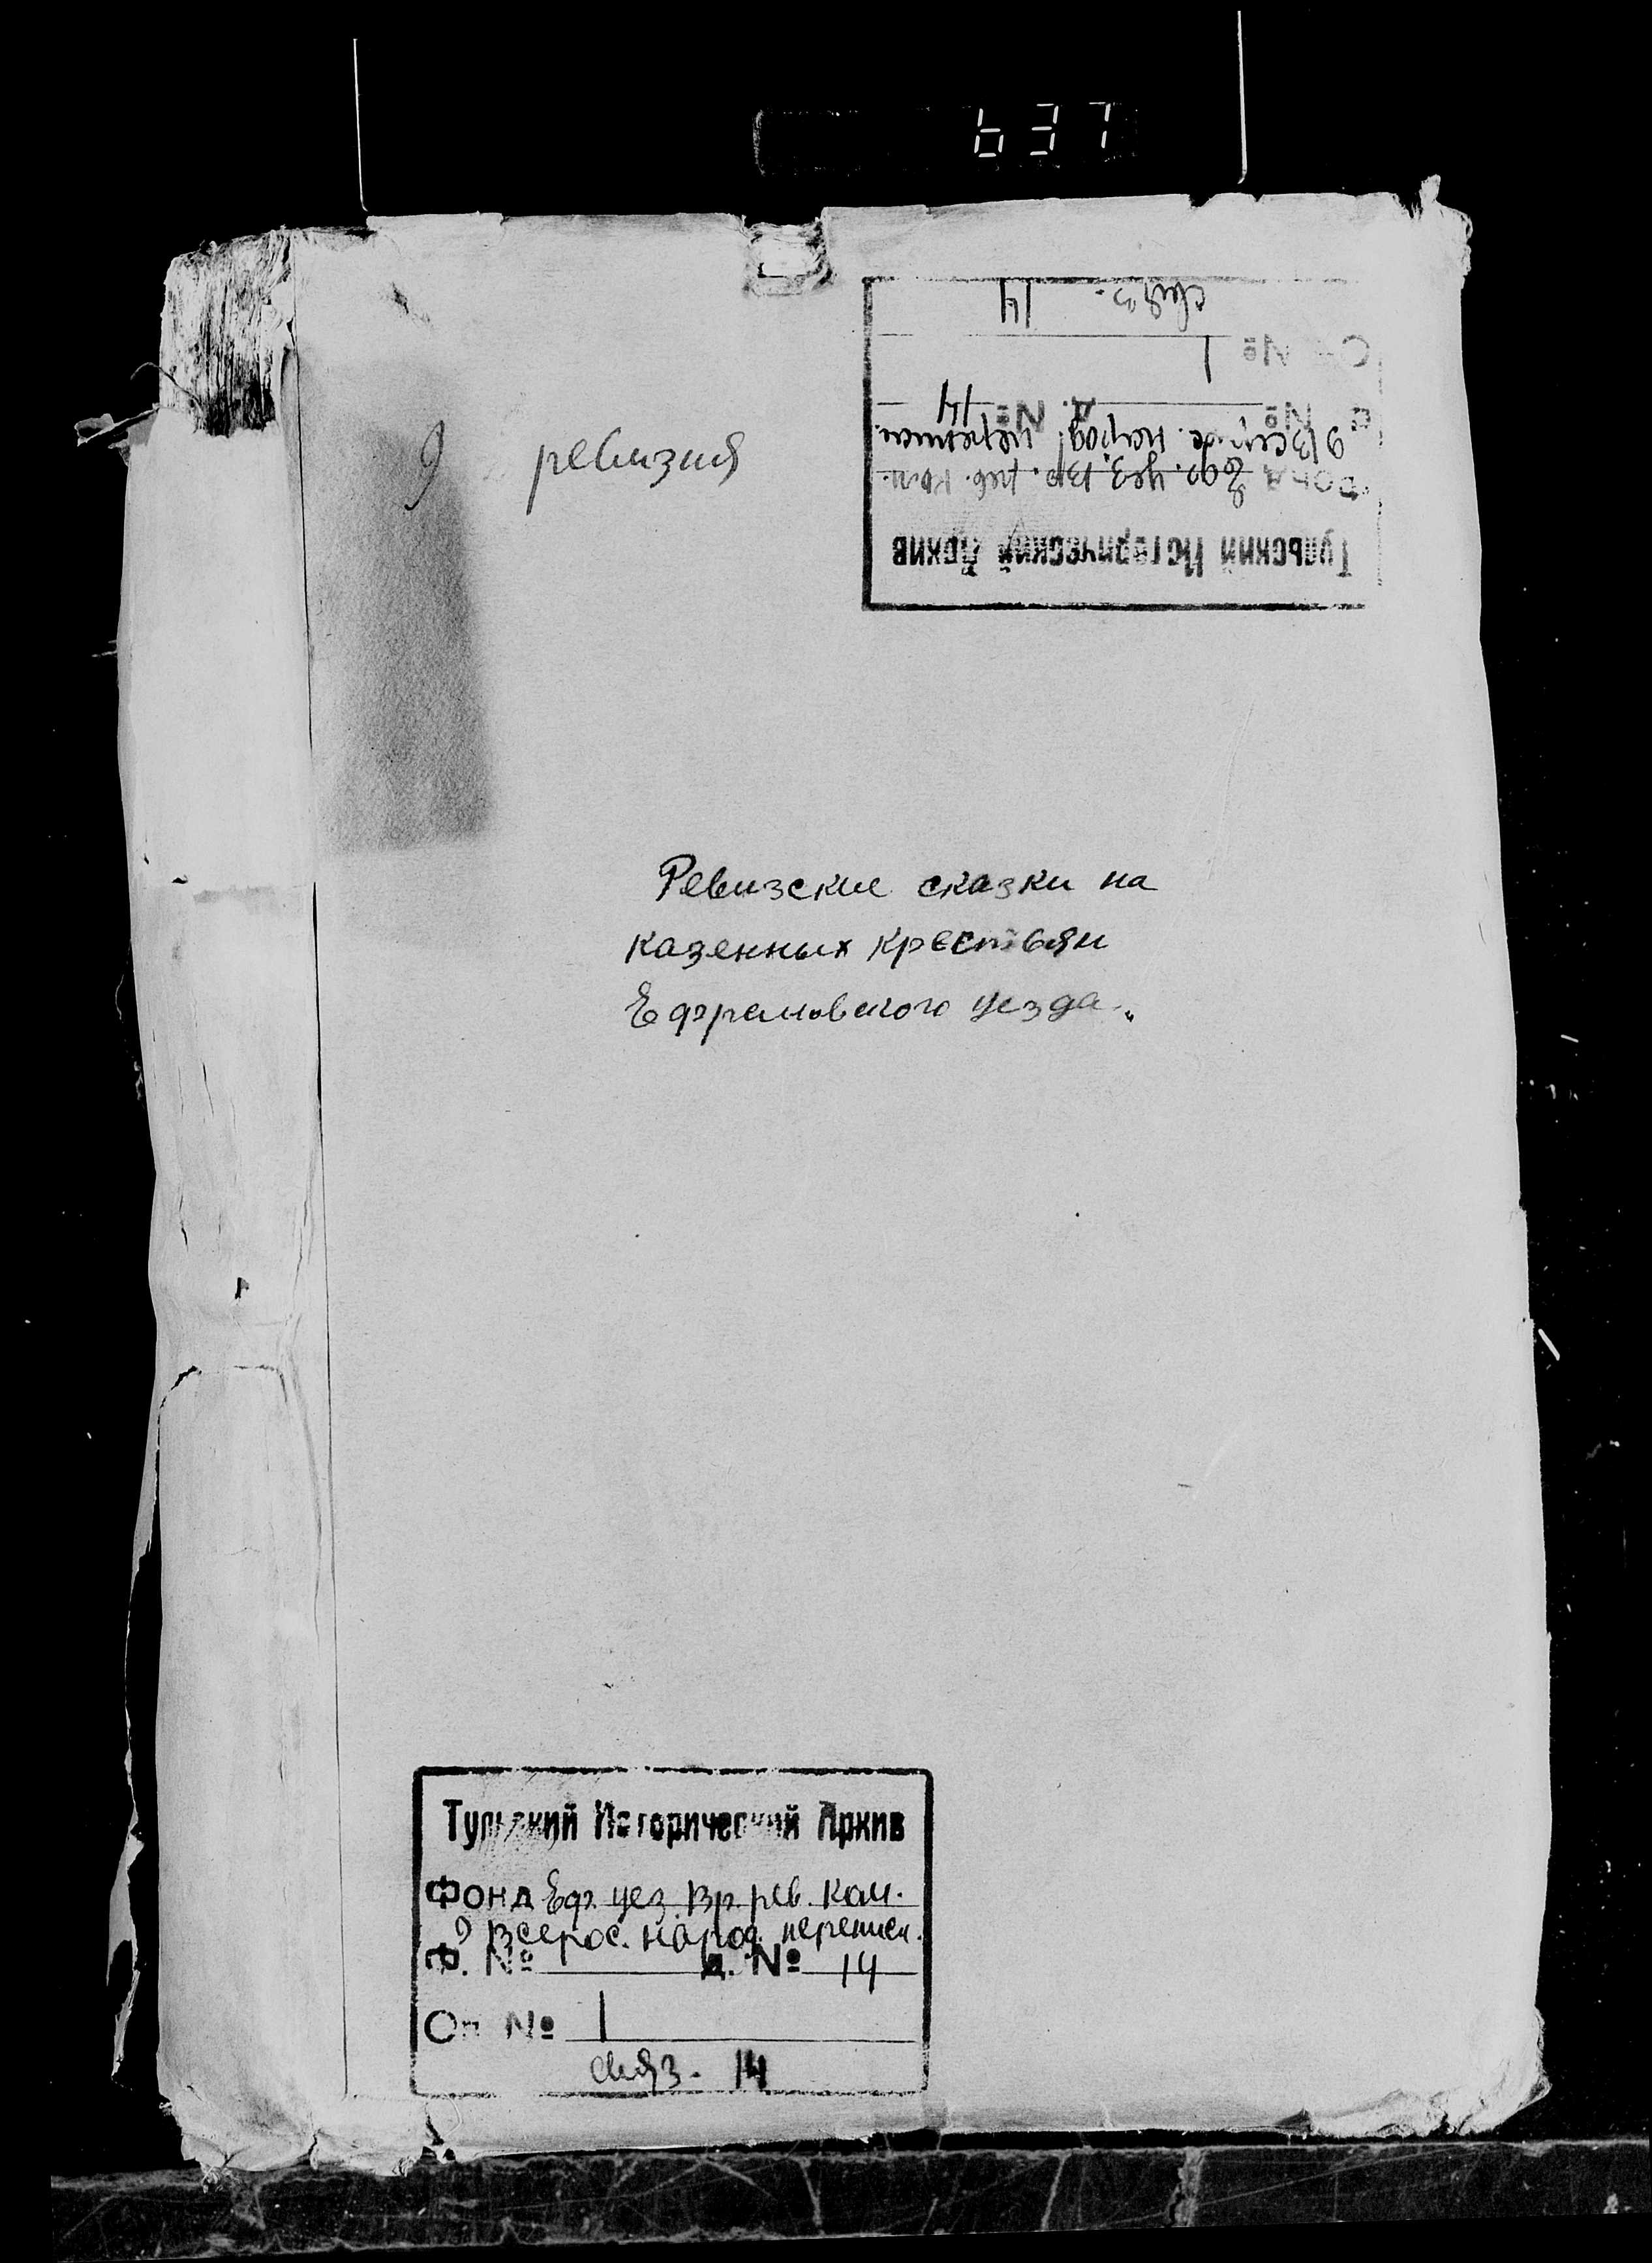 637
связ. 14
Оп №1
Ф. № Д. № 14
9 Всерос. народ. переписи.
Фонд Еф. уез. Вр. рев. Ком.
Тульский Исторический Архив
9 ревизия
Ревизские сказки на
казенных крестьян
Ефремовского уезда.„
Тульский Исторический Архив
Фонд Еф. уез. Вр. рев. Ком.
9 Всерос. народ. переписи.
Ф. № Д. № 14
Оп № 1
связ. 14